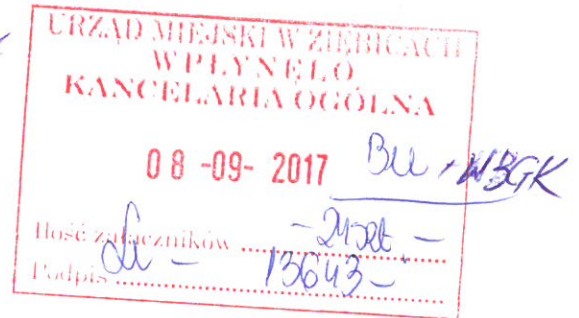 URZĄD MIEJSKI W ZIĘBICACH
WPŁYNĘŁO
KANCELARIA OGÓLNA
08 -09- 2017 BU + WBGK
Ilość załączników
Podpis 13643-